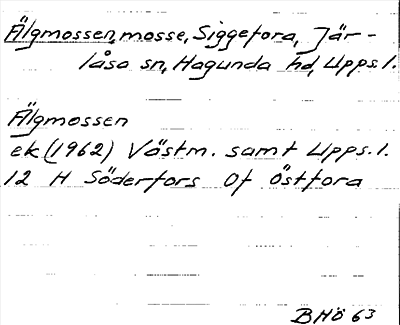 Älgmossen, mosse, Siggefora, Jär-
låsa sn, Hagunda hd, Upps. l.
Älgmossen
ek (1962) Västm. samt Upps. l.
12 H Söderfors 0f Östfora
BHö 63